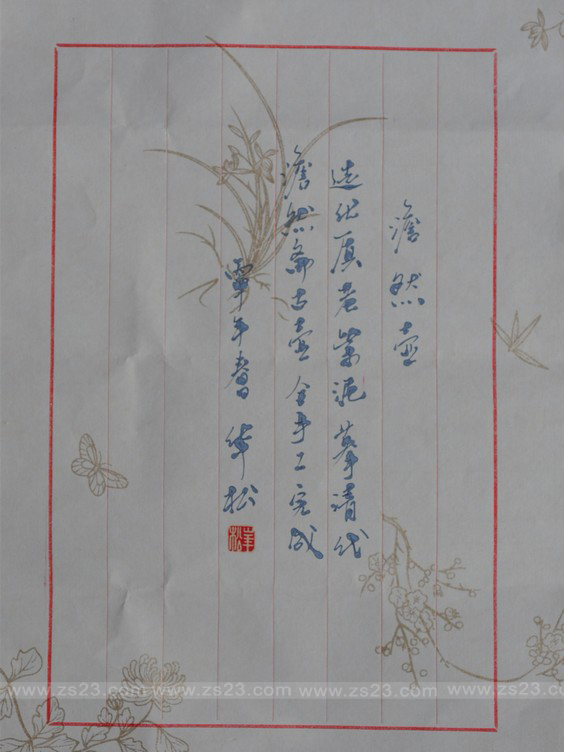 澹然壶
选优质老紫泥摹清代
澹然斋古壶全手工完成
年春 松
www.zs23.com www.zs23.com www.zs23.com www.zs23.com